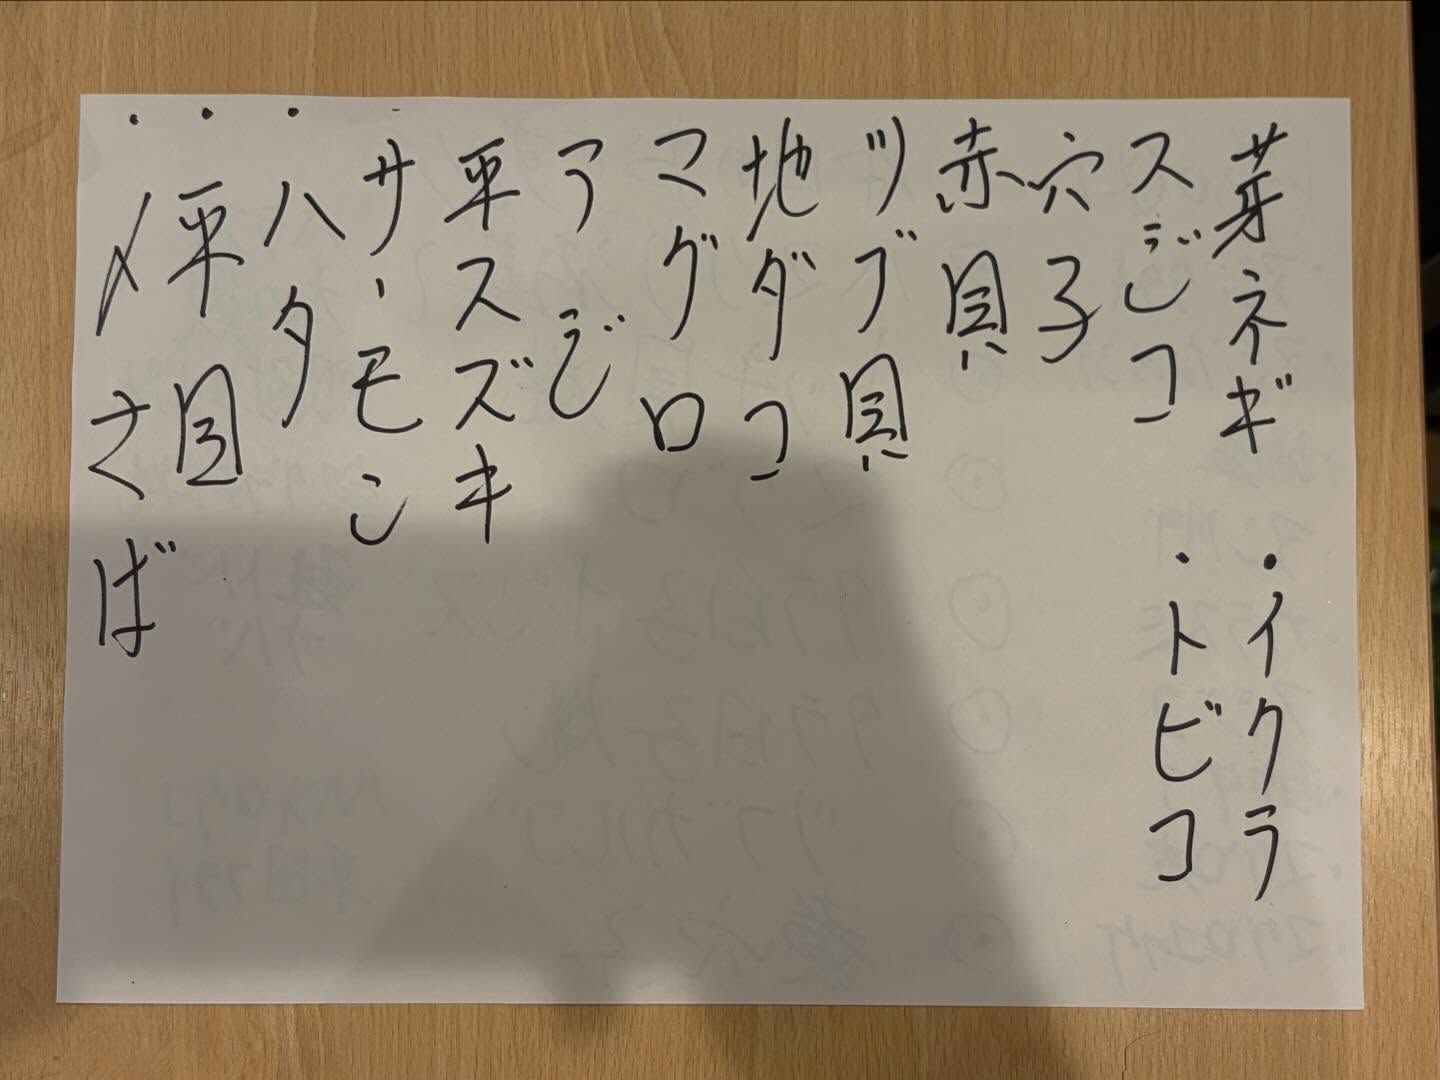 芽ネギ
・イクラ
スジコ
・トビコ
穴子
赤貝
ツブ貝
地ダコ
マグロ
アジ
平スズキ
・サーモン
・ハタ
・平目
・〆さば